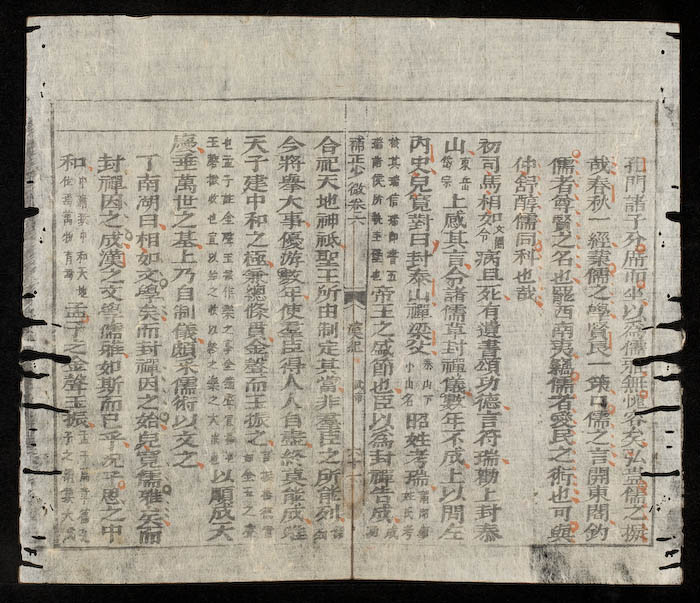 孔門諸子分席而坐以爲儒雅無愧容矣弘盖儒之擬
哉春秋一經葉儒之學賢良一策口儒之言開東閤釣
儒者尊賢之名也罷西南夷竊儒者愛民之術也可與
仲舒醇儒同科也哉
初司馬相如文園令病且死有遺書頌功德言符瑞勸上封泰
山東岳岱宗上感其言令諸儒草封禪儀數年不成上以問左
內史兒寬對曰封泰山禪梁父泰山下小山名昭姓考瑞
帝王之盛節也臣以爲封禪告成
補正少微卷六 漢紀 武帝
合祀天地神祇聖王所由制定其當非羣臣之所能列
今將舉大事優游數年使羣臣得人人自盡終莫能成惟
天子建中和之極兼總條貫金聲而玉振之
以順成天
慶垂萬世之基上乃自制儀頗采儒術以文之
丁南湖曰相如文學矣而封禪因之始兒寬儒雅矣而
封禪因之成漢之文學儒雅如斯而已乎况子思之中
和中庸致中和天地位焉萬物育焉孟子之金聲玉振